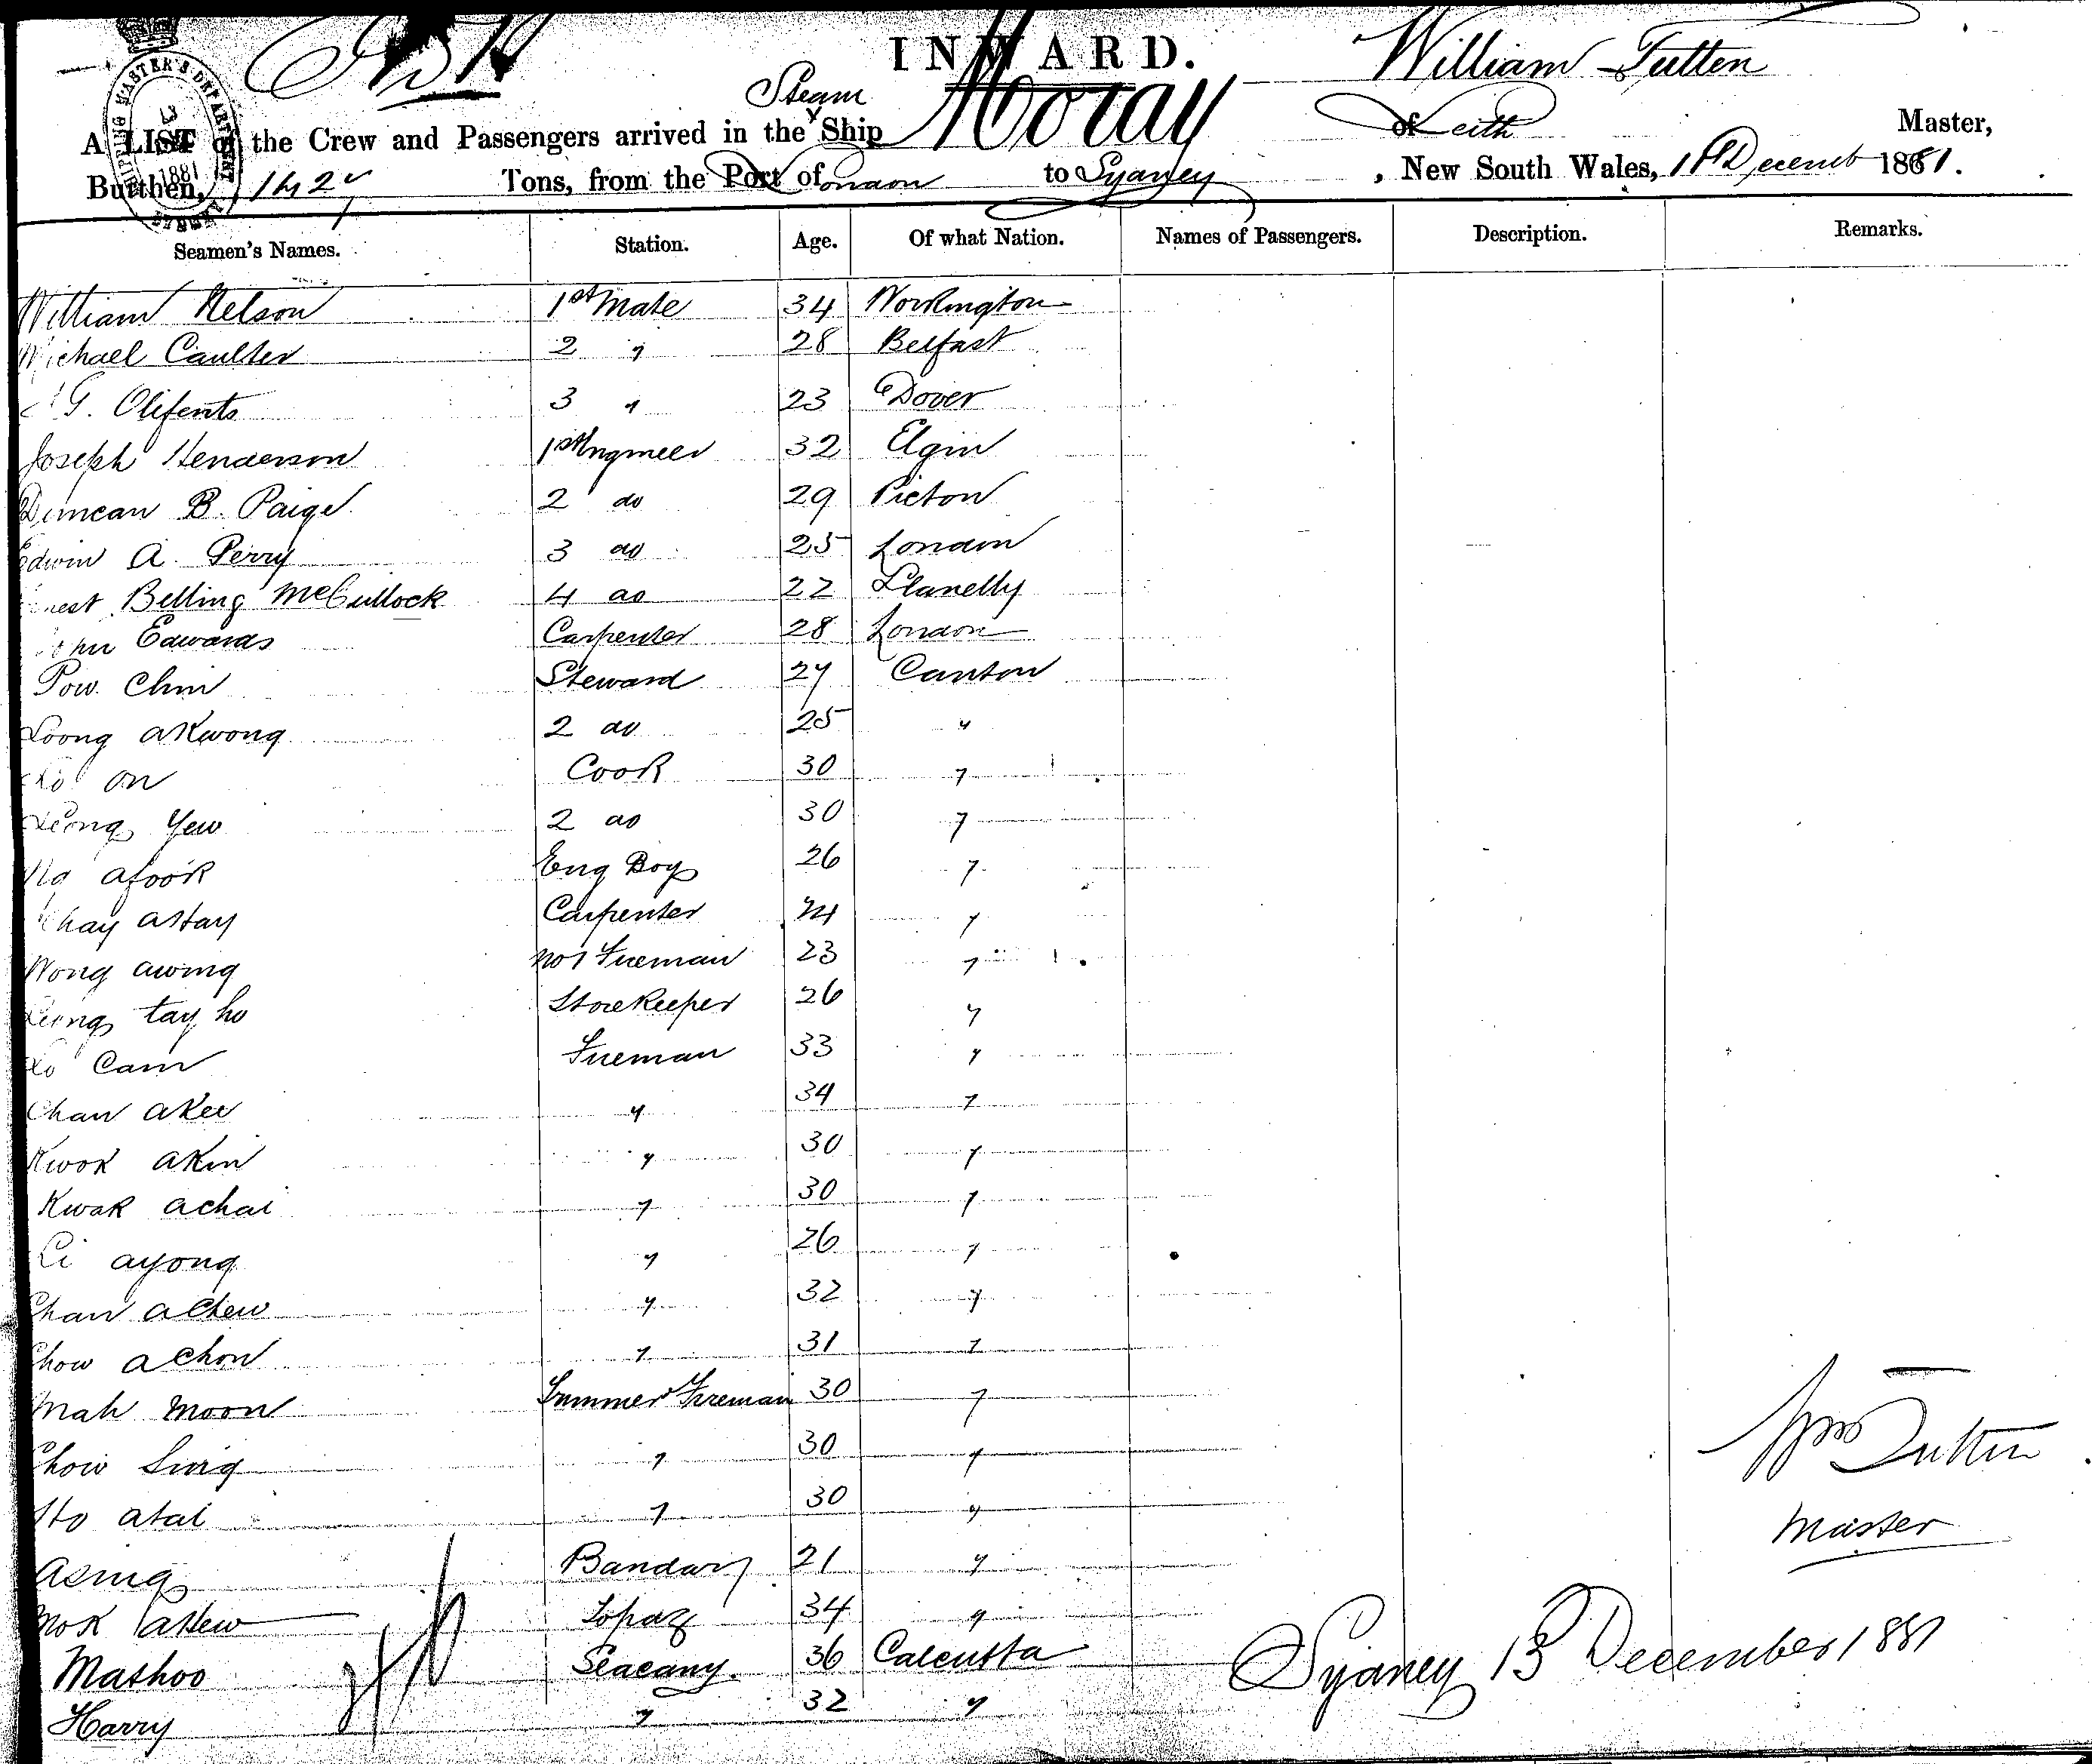 INWARD.
William Tutten
A LIST of the Crew and Passengers arrived in the Steam Ship Moray of Leith Master,
Burthen, 1427 Tons, from the Port of London to Sydney, New South Wales, 1st December 1881.
Seamen's Names. Station. Age. Of what Nation. Names of Passengers. Description. Remarks.
William Nelson 1st Mate 34 Workington
Michael Caulter 2 " 28 Belfast
G. Olifents 3 " 23 Dover
Joseph Henderson 1st Engineer 32 Elgin
Duncan B. Paige 2 do 29 Picton
Edwin A. Perry 3 do 25 London
Ernest Belling McCullock 4 do 22 Llanelly
John Edwards Carpenter 28 London
Pow Chin Steward 27 Canton
Loong akwong 2 do 25 "
on Cook 30 "
Leong Yew 2 do 30 "
afook Eng Boy 26 "
Carpenter "
Wong awing No 1 Fireman 23 "
Leong tay ho Storekeeper 26 "
Cam Fireman 33 "
Chan akee " 34 "
Kwok akin " 30 "
Kwok achai " 30 "
Li ayong " 26 "
Chan achew " 32 "
Chow achon " 31 "
Mah Moon Trimmer Fireman 30 "
Chow Sing " 30 "
Ho atai " 30 "
asing Bandary 21 "
Mok Topaz 34 "
Mashoo Seacuny. 36 Calcutta
Harry " 32 "
Wm Tutten
Master
Sydney 13 December 1881